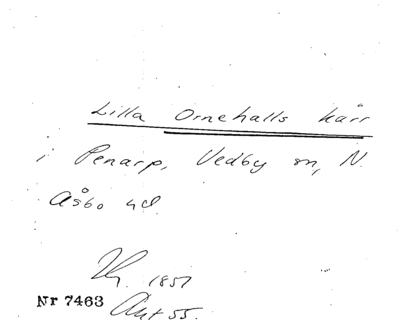 Lilla Ornehalls kärr
i Penarp, Vedby sn, N.
Åsbo hd.
1851
Nr 7463 Akt 55.